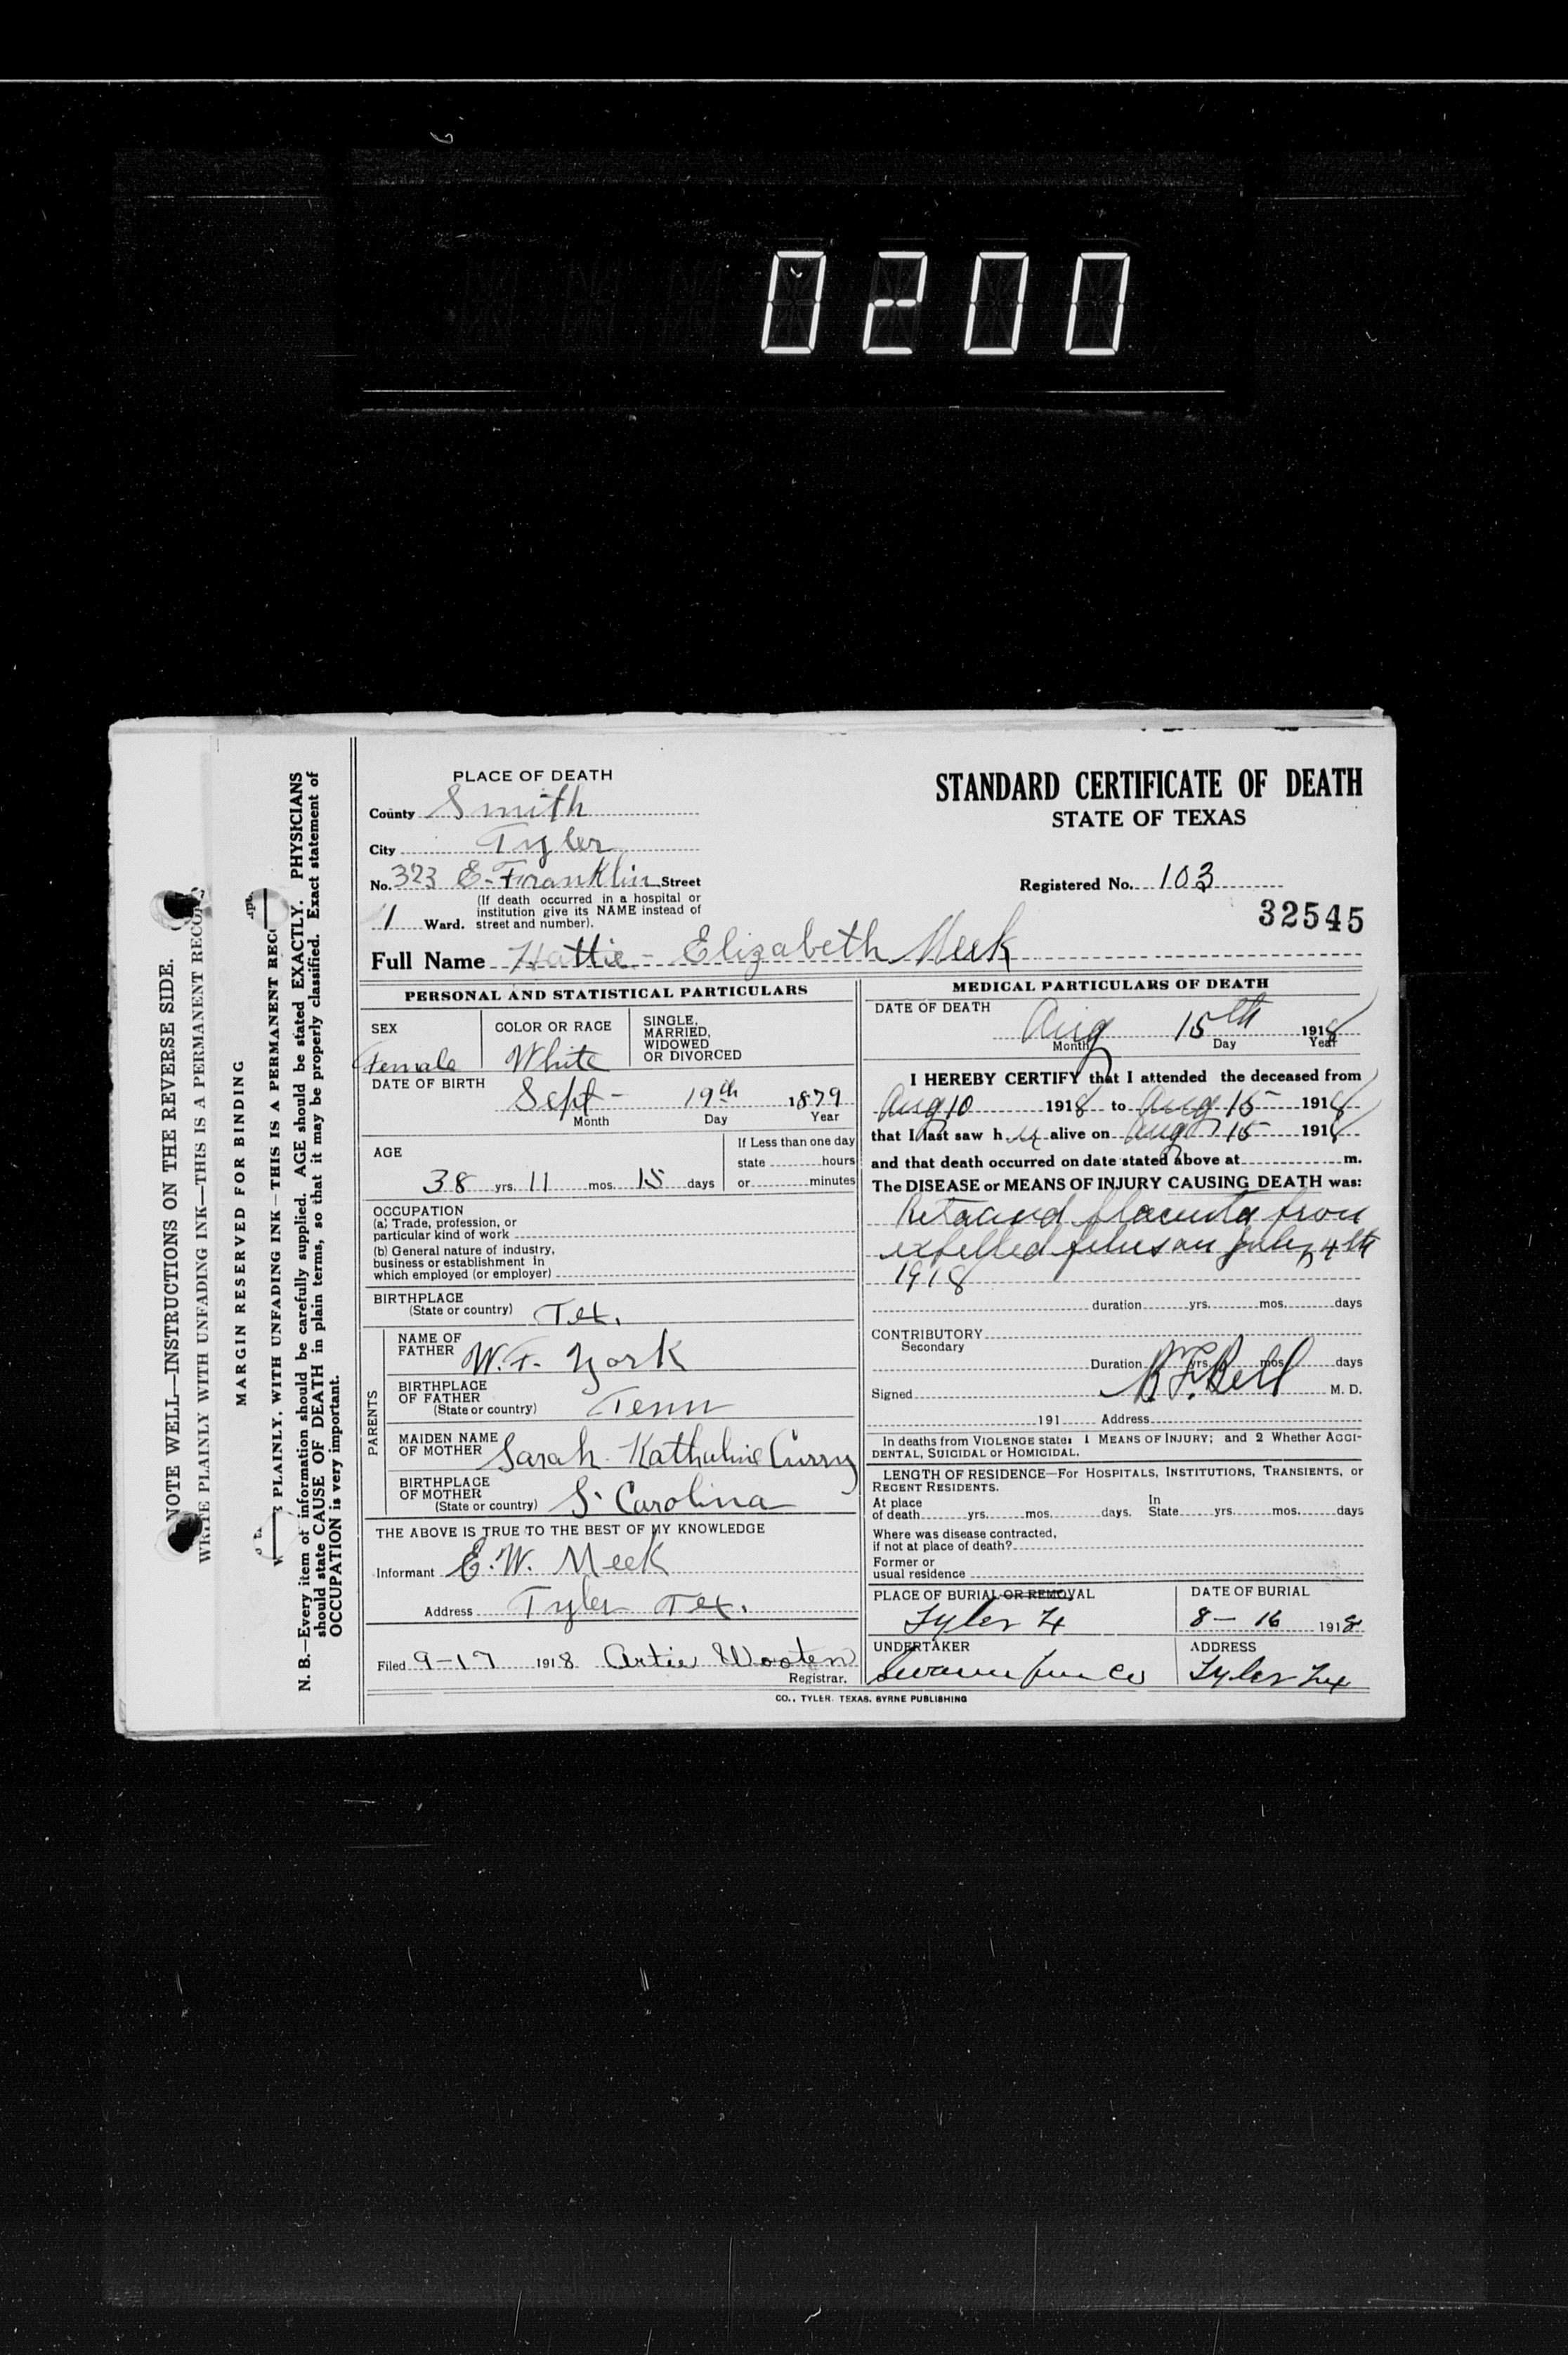 0200
NOTE WELL—INSTRUCTIONS ON THE REVERSE SIDE.
WRITE PLAINLY WITH UNFADING INK—THIS IS A PERMANENT RECORD
MARGIN RESERVED FOR BINDING
PLAINLY, WITH UNFADING INK—THIS IS A PERMANENT REC
N. B.—Every item of information should be carefully supplied. AGE should be stated EXACTLY. PHYSICIANS
should state CAUSE OF DEATH in plain terms, so that it may be properly classified. Exact statement of
OCCUPATION is very important.
PLACE OF DEATH
County Smith
City Tyler
No. 323 E. Franklin Street
(If death occurred in a hospital or
institution give its NAME instead of
1 Ward. street and number).
STANDARD CERTIFICATE OF DEATH
STATE OF TEXAS
Registered No. 103
32545
Full Name Hattie - Elizabeth Meek
PERSONAL AND STATISTICAL PARTICULARS
SEX
Female
COLOR OR RACE
White
SINGLE,
MARRIED,
WIDOWED
OR DIVORCED
DATE OF BIRTH
Sept - 19th 1879
Month Day Year
AGE
38 yrs. 11 mos. 15 days
If Less than one day
state hours
or minutes
OCCUPATION
(a) Trade, profession, or
particular kind of work
(b) General nature of industry,
business or establishment in
which employed (or employer)
BIRTHPLACE
(State or country) Tex.
PARENTS
NAME OF
FATHER W. F. York
BIRTHPLACE
OF FATHER
(State or country) Tenn
MAIDEN NAME
OF MOTHER Sarah Kathuline Curry
BIRTHPLACE
OF MOTHER
(State or country) S. Carolina
THE ABOVE IS TRUE TO THE BEST OF MY KNOWLEDGE
Informant E. W. Meek
Address Tyler Tex.
Filed 9-17 1918 Artie Wooten
Registrar.
MEDICAL PARTICULARS OF DEATH
DATE OF DEATH
Aug 15th 1918
Month Day Year
I HEREBY CERTIFY that I attended the deceased from
Aug 10 1918 to Aug 15 1918
that I last saw h er alive on Aug 15 1918
and that death occurred on date stated above at m.
The DISEASE or MEANS OF INJURY CAUSING DEATH was:
Retaind placenta from
expelled fetus on July 4th
1918
duration yrs. mos. days
CONTRIBUTORY
Secondary
Duration yrs. mos. days
Signed Bell M. D.
191 Address
In deaths from VIOLENCE state: 1 MEANS OF INJURY; and 2 Whether ACCI-
DENTAL, SUICIDAL or HOMICIDAL.
LENGTH OF RESIDENCE—For HOSPITALS, INSTITUTIONS, TRANSIENTS, or
RECENT RESIDENTS.
At place
of death yrs. mos. days. In
State yrs. mos. days
Where was disease contracted,
if not at place of death?
Former or
usual residence
PLACE OF BURIAL OR REMOVAL
Tyler Tx
DATE OF BURIAL
8 - 16 1918
UNDERTAKER
Swann Fur Co
ADDRESS
Tyler Tex
CO., TYLER. TEXAS. BYRNE PUBLISHING